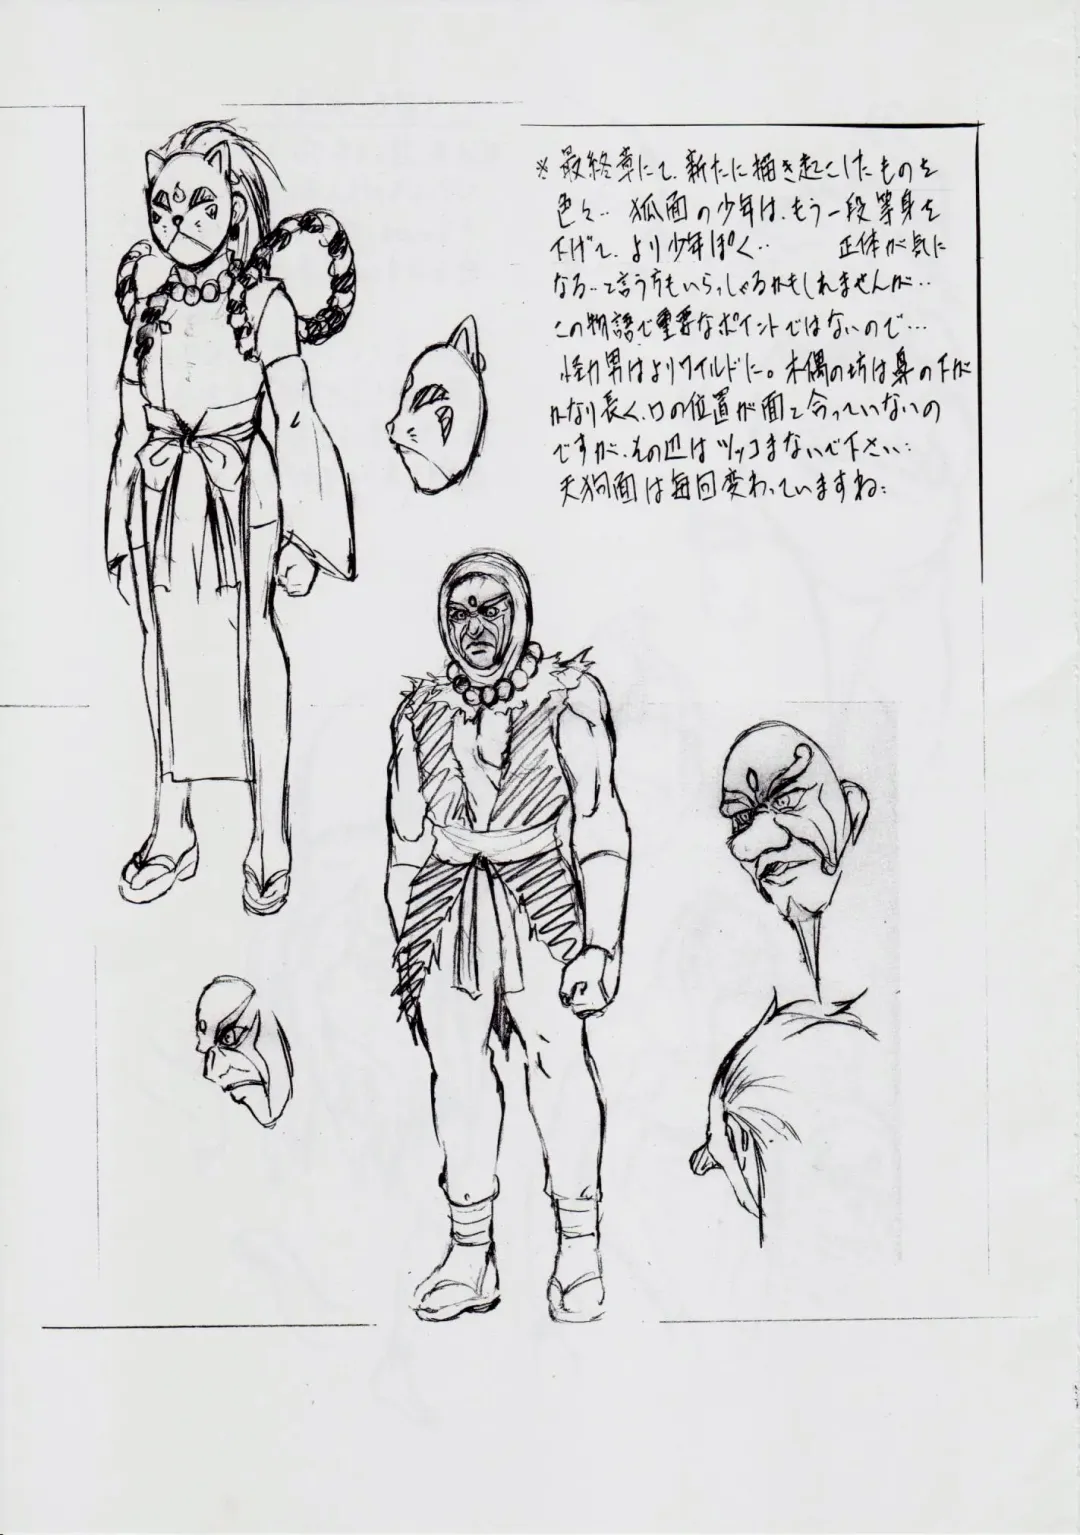 ※最終章にて、新たに描き起こしたものを
色々‥ 狐面の少年は、もう一段等身を
下げて、より少年ぽく‥ 正体が気に
なる‥と言う方もいらっしゃるかもしれませんが‥
この物語で重要なポイントではないので…
怪力男はよりワイルドに。木偶の坊は鼻の下が
かなり長く、口の位置が面と合っていないの
ですが、その辺はツッコまないで下さい:
天狗面は毎回変わっていますね: